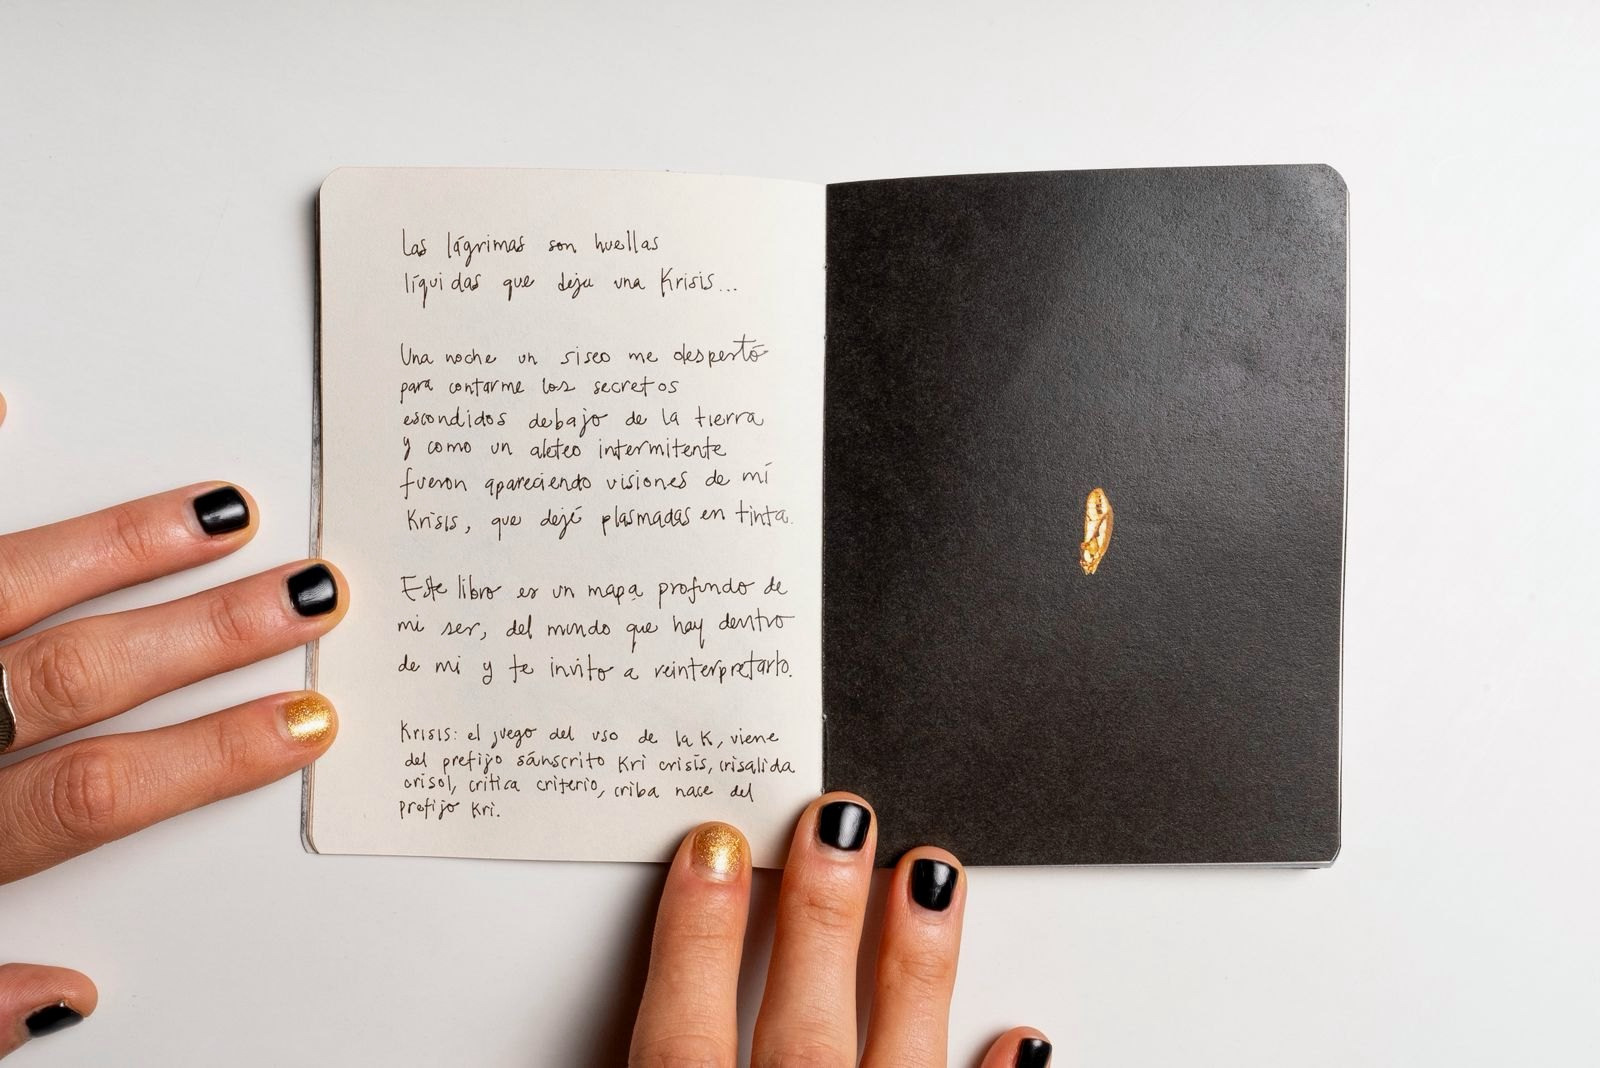 Las lágrimas son huellas
líquidas que deja una Krisis...
Una noche un siseo me despertó
para contarme los secretos
escondidos debajo de la tierra
y como un aleteo intermitente
fueron apareciendo visiones de mí
Krisis, que dejé plasmadas en tinta.
Este libro es un mapa profundo de
mi ser, del mundo que hay dentro
de mi y te invito a reinterpretarlo.
Krisis: el juego del uso de la K, viene
del prefijo sánscrito Kri crisis, crisalida
crisol, critica criterio, criba nace del
prefijo Kri.